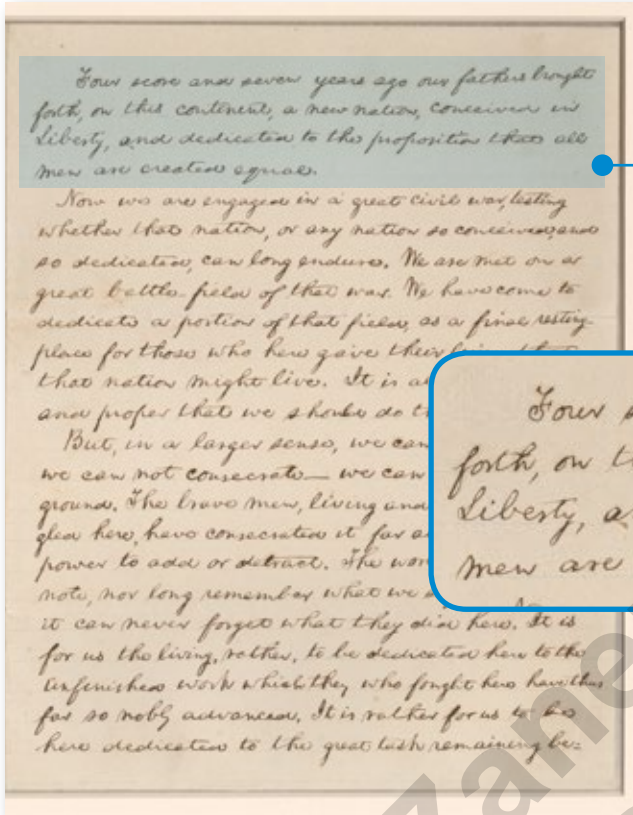 Four score and seven years ago our fathers brought
forth, on this continent, a new nation, conceived in
Liberty, and dedicated to the proposition that all
men are created equal.
Now we are engaged in a great civil war, testing
whether that nation, or any nation so conceived, and
so dedicated, can long endure. We are met on a
great battle-field of that war. We have come to
dedicate a portion of that field, as a final resting-
place for those who here gave their
that nation might live. It is a
and proper that we should do t
But, in a larger sense, we can
we can not consecrate— we can
ground. The brave men, living and
gled here, have consecrated it far a
power to add or detract. The wor
note, nor long remember what we s
it can never forget what they did here. It is
for us the living, rather, to be dedicated here to the
unfinished work which they who fought here have thus
far so nobly advanced. It is rather for us to be
here dedicated to the great task remaining be-
Four s
forth, on t
Liberty, a
men are
Zane